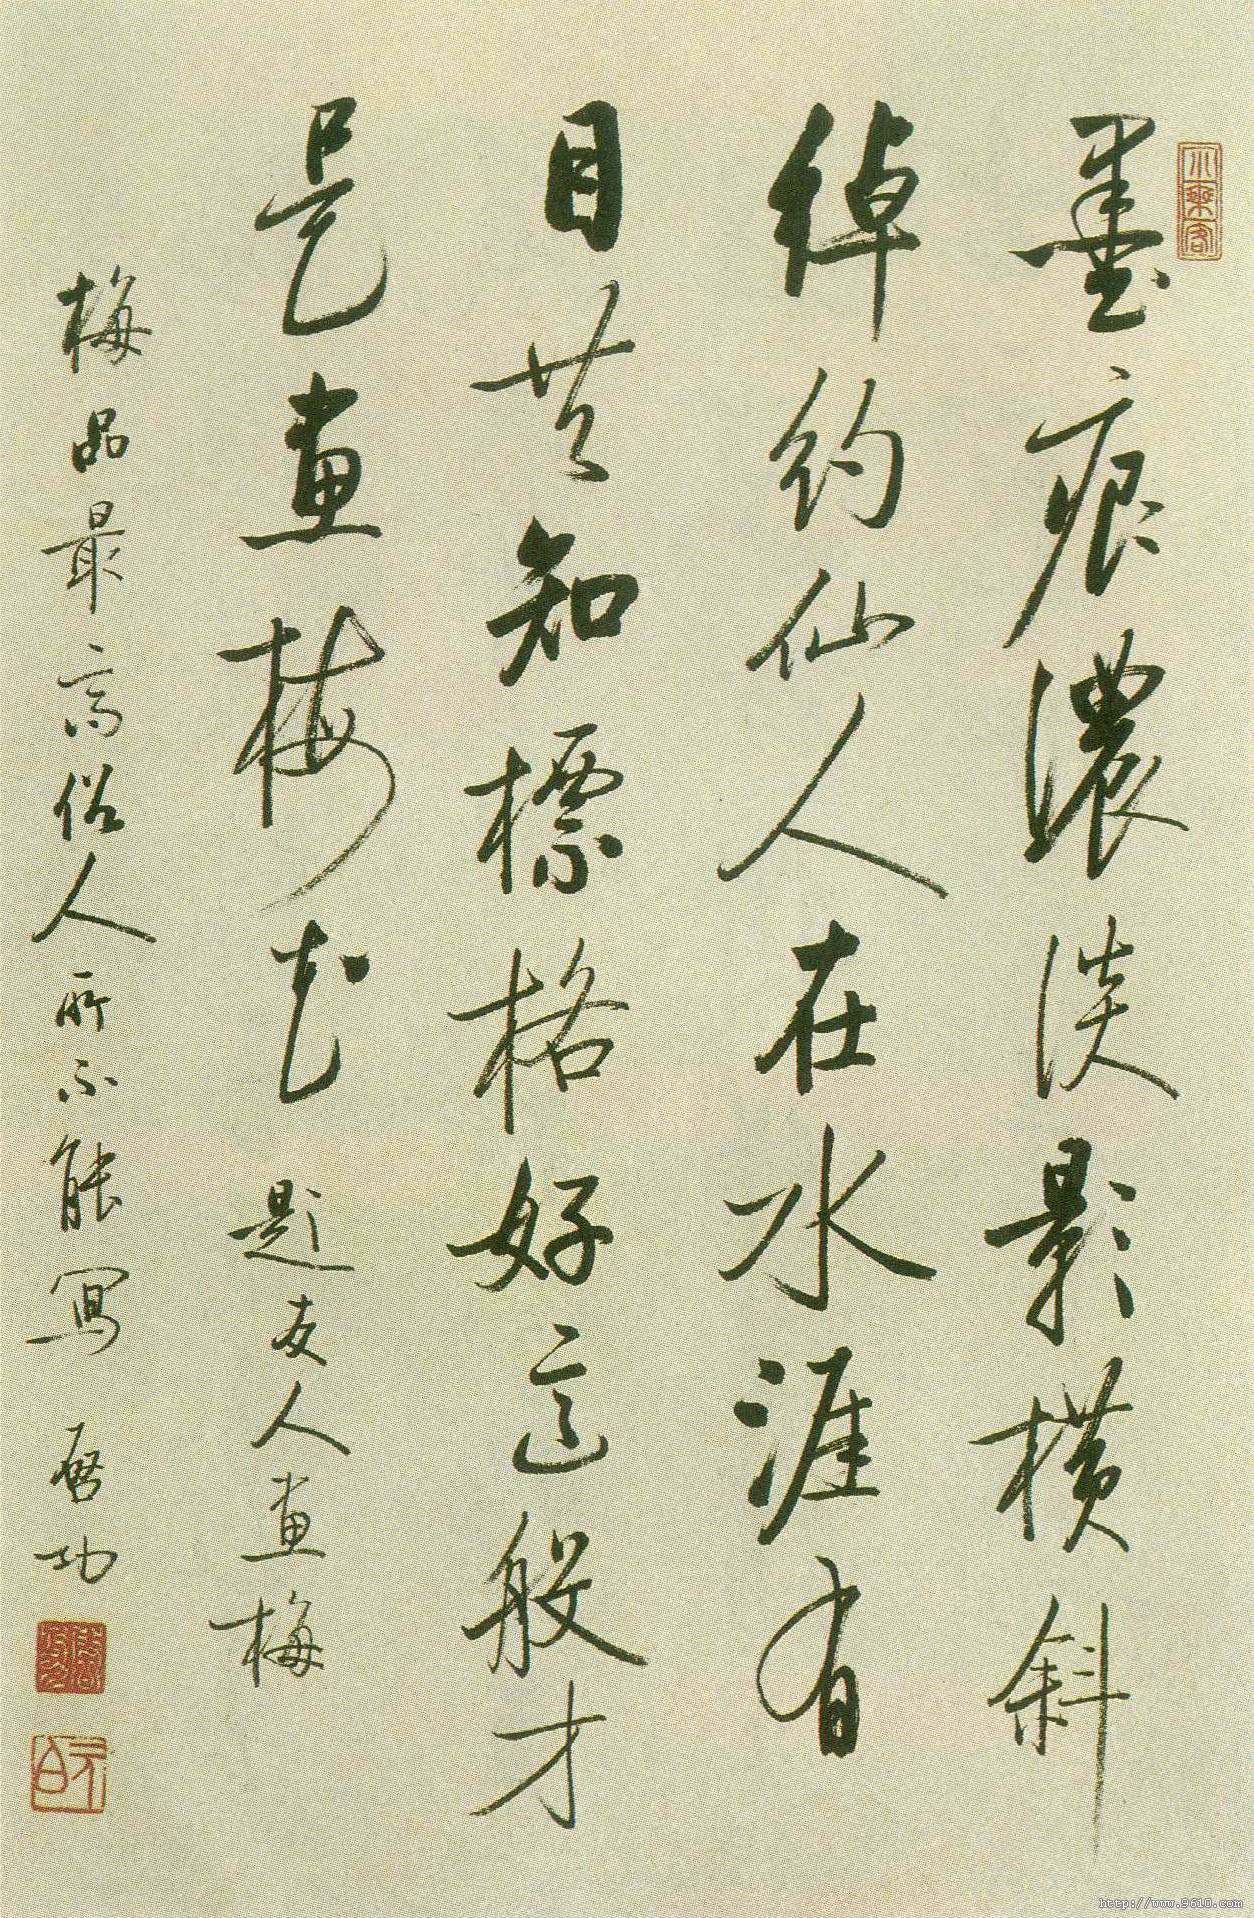 小乘客
墨痕濃淡影横斜
綽約仙人在水涯有
目共知標格好這般才
是畫梅花 題友人畫梅
梅品最高俗人所不能寫 啓功
啓功
元白
http://www.9610.com